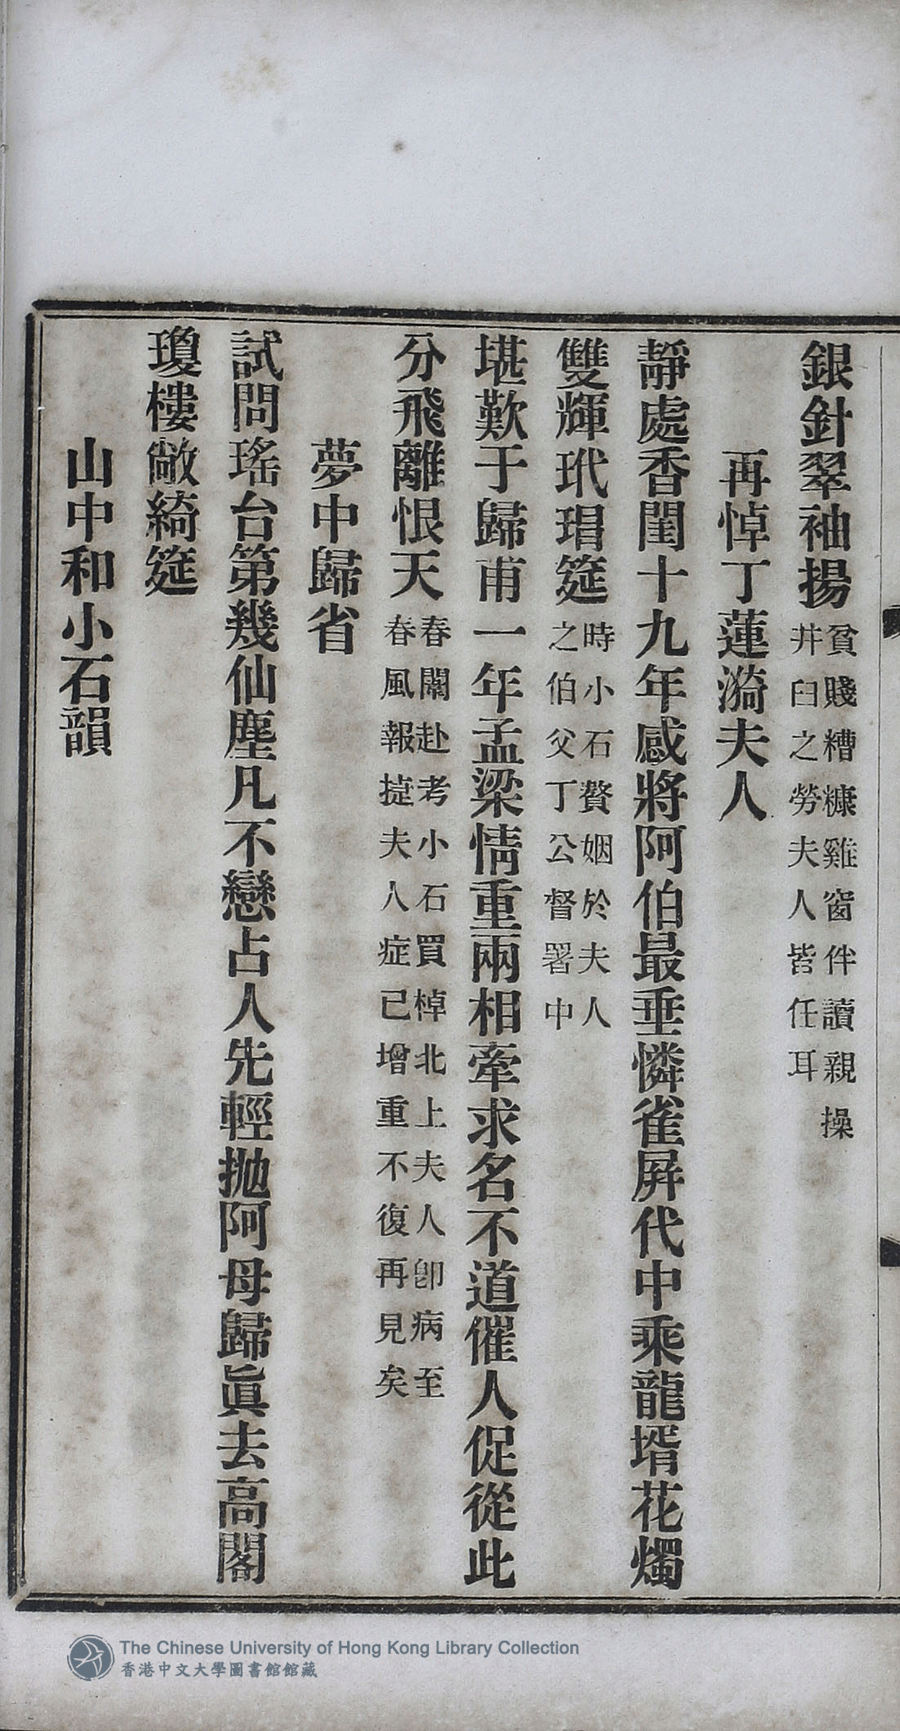 銀針翠袖揚貧賤糟糠雞窗伴讀親操井臼之勞夫人皆任耳
再悼丁蓮漪夫人
靜處香閨十九年感將阿伯最垂憐雀屛代中乘龍壻花燭
雙輝玳瑁筵時小石贅姻於夫人之伯父丁公督署中
堪歎于歸甫一年孟梁情重兩相牽求名不道催人促從此
分飛離恨天春闈赴考小石買棹北上夫人卽病至春風報㨗夫人症已增重不復再見矣
夢中歸省
試問瑤台第幾仙塵凡不戀占人先輕拋阿母歸眞去高閣
瓊樓敞綺筵
山中和小石韻
The Chinese University of Hong Kong Library Collection
香港中文大學圖書館館藏